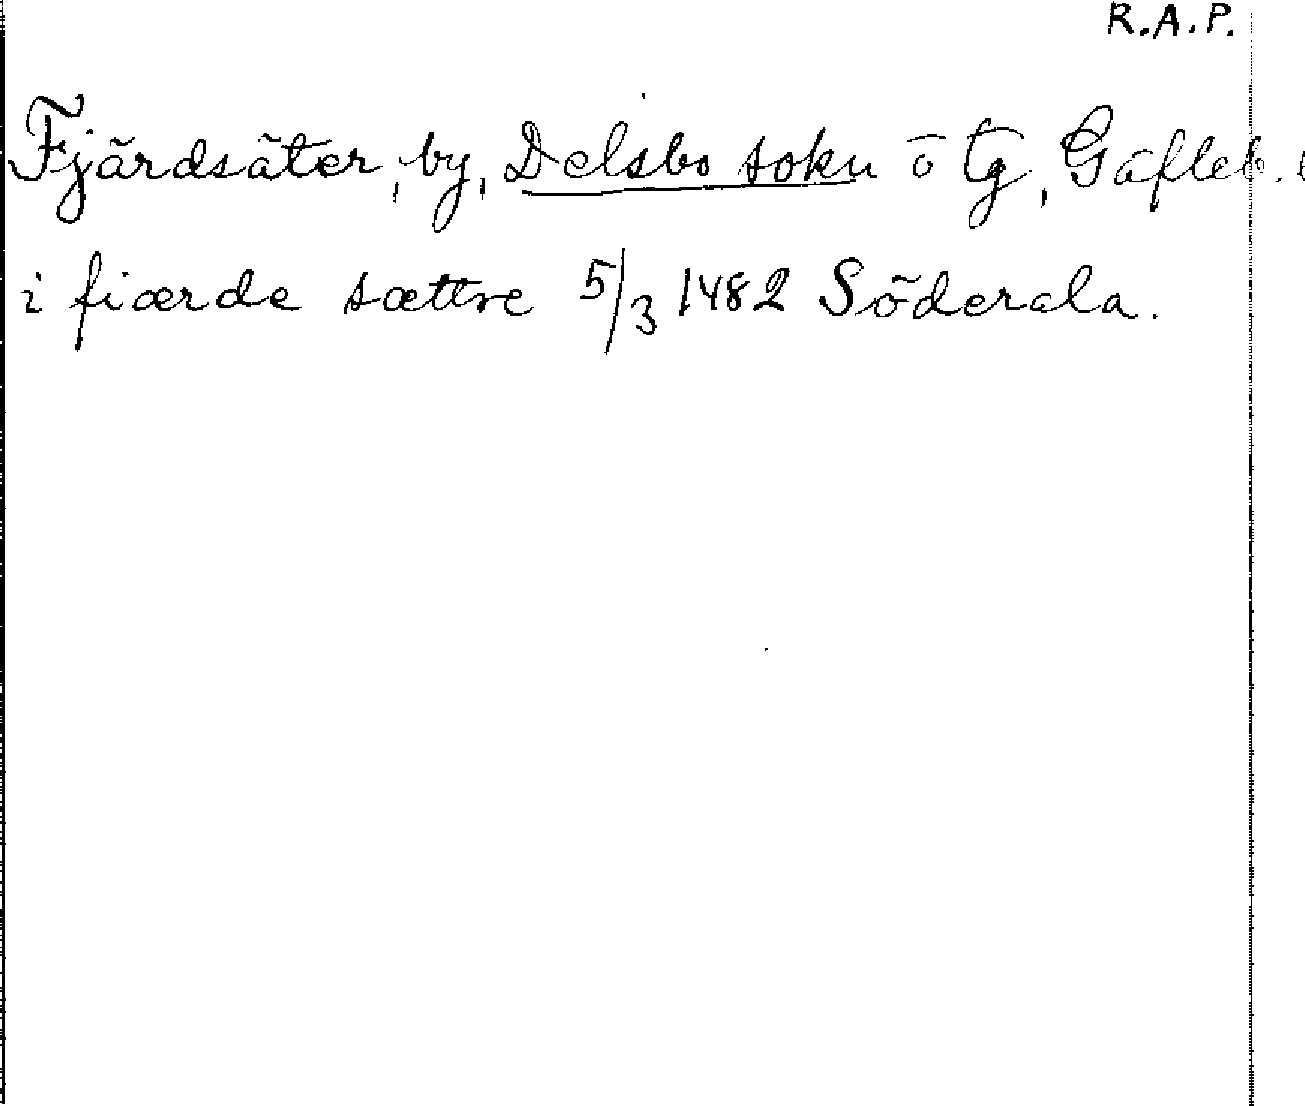 R.A.P.
Fjärdsäter, by, Delsbo sokn o tg, Gäfleb. l
i fiærde sættre 5/3 1482 Söderala.